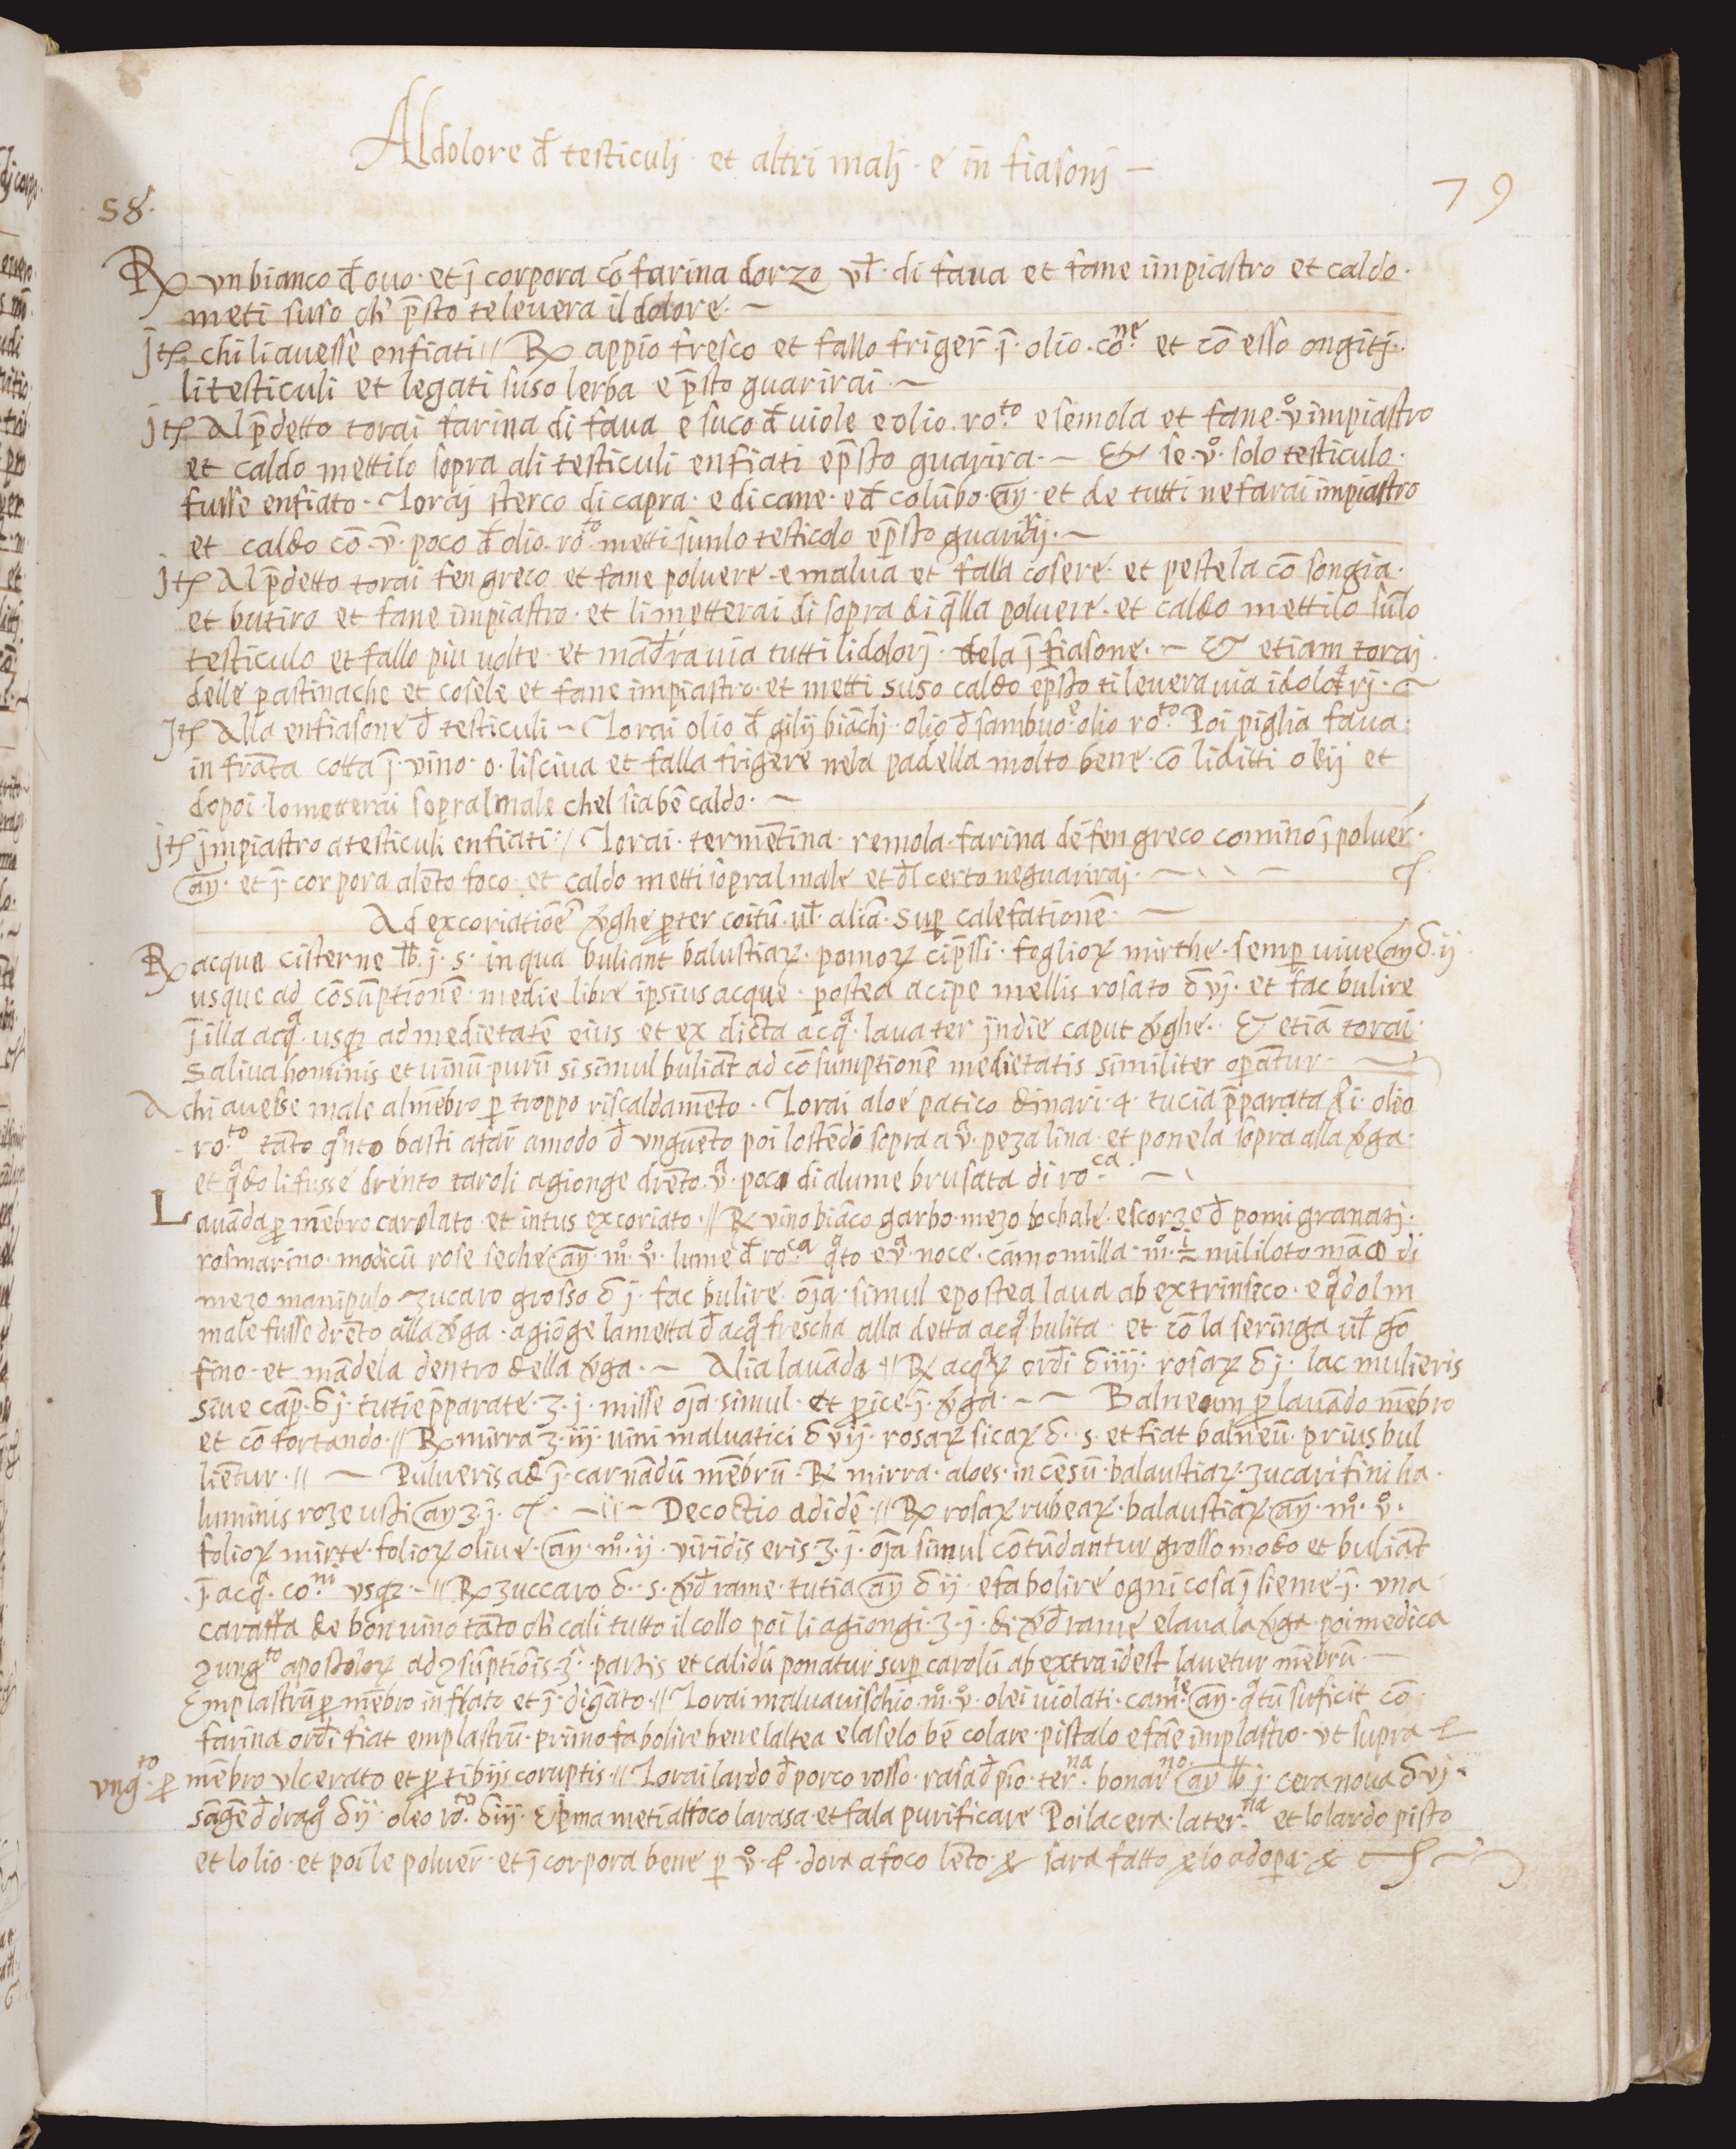 Al dolore đ testiculj · et altri malj · e in fiasonj —
58·
79
℞ vn bianco đ ouo · et ī corpora cō farina dorzo vł · di faua et fane impiastro et caldo ·
meti suso ch' p̄sto te leuera il dolore · —
Jtē chi li auesse enfiati // ℞ appio fresco et fallo friger̄ ī · olio · co:ne et cō esso ongitj ·
li testiculi et legati suso lerba e p̄sto guarirai · —
Jtē Al p̄detto torai farina di faua e suco đ uiole e olio · ro:to e semola et fane · vo impiastro
et caldo mettilo sopra ali testiculi enfiati e p̄sto guarira · — Et se · vo · solo testiculo ·
fusse enfiato · Toraj sterco di capra · e di cane · e đ colūbo · añ · et de tutti ne farai impiastro
et caldo cō · v̄ · poco đ olio · ro:to metti sunlo testicolo e p̄sto guarirai · —
Jtē Al p̄detto torai fen greco et fane poluere · e malua et falla cosere · et pestela cō songia ·
et butiro et fane impiastro · et li metterai di sopra di q̄lla poluere · et caldo mettilo sūlo
testiculo et fallo piu uolte · et māđra uia tutti li dolorj · dela ī fiasone · — Et etiam toraj
delle pastinache et cosele et fane impiastro · et metti suso caldo e p̄sto ti leuera uia i dolorj · —
Jtē Alla enfiasone đ testiculi — Torai olio đ gilij biāchj · olio đ sambuo · e olio ro:to Poi piglia faua ·
in frāta cotta ī · vino · o · lisciua et falla frigere nela padella molto bene · cō li ditti olij et
dopoi · lo metterai sopral male chel sia bē caldo · —
Jtē Jmpiastro a testiculi enfiati :/ Torai · termētina · remola · farina de fen greco comino ī poluer̄ ·
añ · et ī · corpora a lēto foco · et caldo metti sopral male et đl certo ne guarirai · —
Ad excoriatiōē v̄ghe p̄ter coitū · vł · aliā · sup calefationē · —
℞ acqua cisterne ℔ · j · s · in qua buliant balustiaꝝ · pomoꝝ cip̄ssi · foglioꝝ mirthe · semp uiue añ ʒ · ij
usque ad cōsūptionē medie libre ipsius acque · postea acipe mellis rosato ʒ vj · et fac bulire
ī illa acqa · usqꝫ ad medietatē eius et ex dicta acqa · laua ter jndie caput v̄ghe · Et etiā torai
saliua hominis et uinū purū si simul buliāt ad cōsumptionē medietatis similiter opāntur · —
A chi auesse male al mēbro p troppo riscaldamēto · Torai aloe patico dinari · 4 · tucia p̄parata đ i · olio
ro:to tāto qanto basti a far̄ a modo đ vnguēto poi lo stēdi sopra a va · peza lina · et ponela sopra alla v̄ga ·
et qado li fusse drento taroli agionge drēto · va · poca di alume brusata di ro:ca · —
Lauāda p mēbro carolato et intus excoriato · // ℞ vino biāco garbo · mezo bochale · e scorze đ pomi granatj ·
rosmarino · modicū rose seche añ mo · vo · lume đ ro:ca qato e va · noce · camomilla · mo · ½ mililoto māco di
mezo manipulo · zucaro grosso ʒ j · fac bulire oīa · simul e postea laua ab extrinseco · e qado lm
male fusse drēto alla v̄ga · agiōge la metta đ acqa frescha alla detta acqa bulita · et cō la seringa vł gō
fino · et mādela dentro della v̄ga · — Alia lauāda // ℞ acqaꝝ ordi ʒ iiij · rosaꝝ ʒ j · lac mulieris
siue cap · ʒ j · tutie p̄parate · ʒ · j · misse oīa simul · et p̄ice · ī · v̄ga · — Balneum p lauādo mēbro
et cō fortando · // ℞ mirra ʒ · iij · uini maluatici ʒ vij · rosaꝝ sicaꝝ ʒ · s · et fiat balneū · prius bul
lientur · // — Pulueris ad ī · carnādū mēbrū · ℞ mirra · aloes · incēsū · balaustiaꝝ · zucari fini ha ·
luminis roze usti añ ʒ · j · — Decoctio ad idē · // ℞ rosaꝝ rubeaꝝ · balaustiaꝝ añ · mo · vo ·
folioꝝ mirte · folioꝝ oliue · añ · mo · ij · viridis eris · ʒ · j · oīa simul cōtūdantur grosso modo et buliāt
ī · acqa · co:ni vsqꝫ — // ℞ zuccaro ʒ · s · v̄đ rame · tutia añ ʒ ij · e fa bolire ogni cosa ī sieme · ī · una
caraffa de bon uino tāto ch' cali tutto il collo poi li agiongi · ʒ · j · di v̄đ rame e laua la v̄ga · poi medica
ꝯ ungto apostoloꝝ ad ꝯsūptiōis · ʒ · partis et calidū ponatur sup carolū ab extra idest lauetur mēbrū · —
Emplastrū p mēbro inflato et ī · digāto // Torai maluauischio mo · vo · olei uiolati · cam:le añ · qatū suficit cō ·
farina ordi fiat emplastrū · primo fa bolire bene laltea e laselo bē colare · pistalo e fāe implastro · vt supra
ungto · p mēbro vlcerato et p tibijs coruptis · // Torai lardo đ porco rosso · rasa đ pīo · ter:na · bonar:no añ ℔ j · cera noua ʒ vj ·
sāgēđ dragō ʒ ij · oleo ro:to ʒ iij · E p̄ma meti al foco la rasa · et fala purificare Poi la cera · la ter:na et lo lardo pisto
et lo lio · et poi le poluer̄ · et ī corpora bene p vo · dora a foco lēto · & sara fatto & lo adopa · &